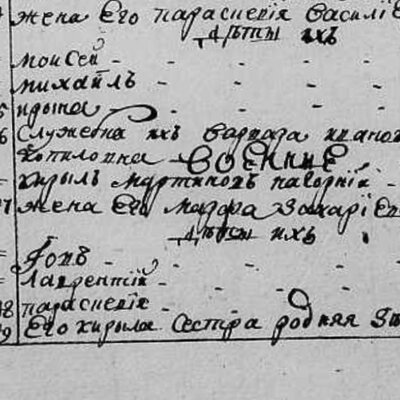 жена Его параскевiя василiе
дѣти ихъ
моисей
михаилъ
ирина
6 служебка ихъ варвара иванов
копиловна
воение
кирылъ мартиновъ нагорнiй
жена Его марфа Захарiев
дѣти ихъ
Гопъ
лаврентiй
18 параскевiя
19 Его кирыла сестра родная